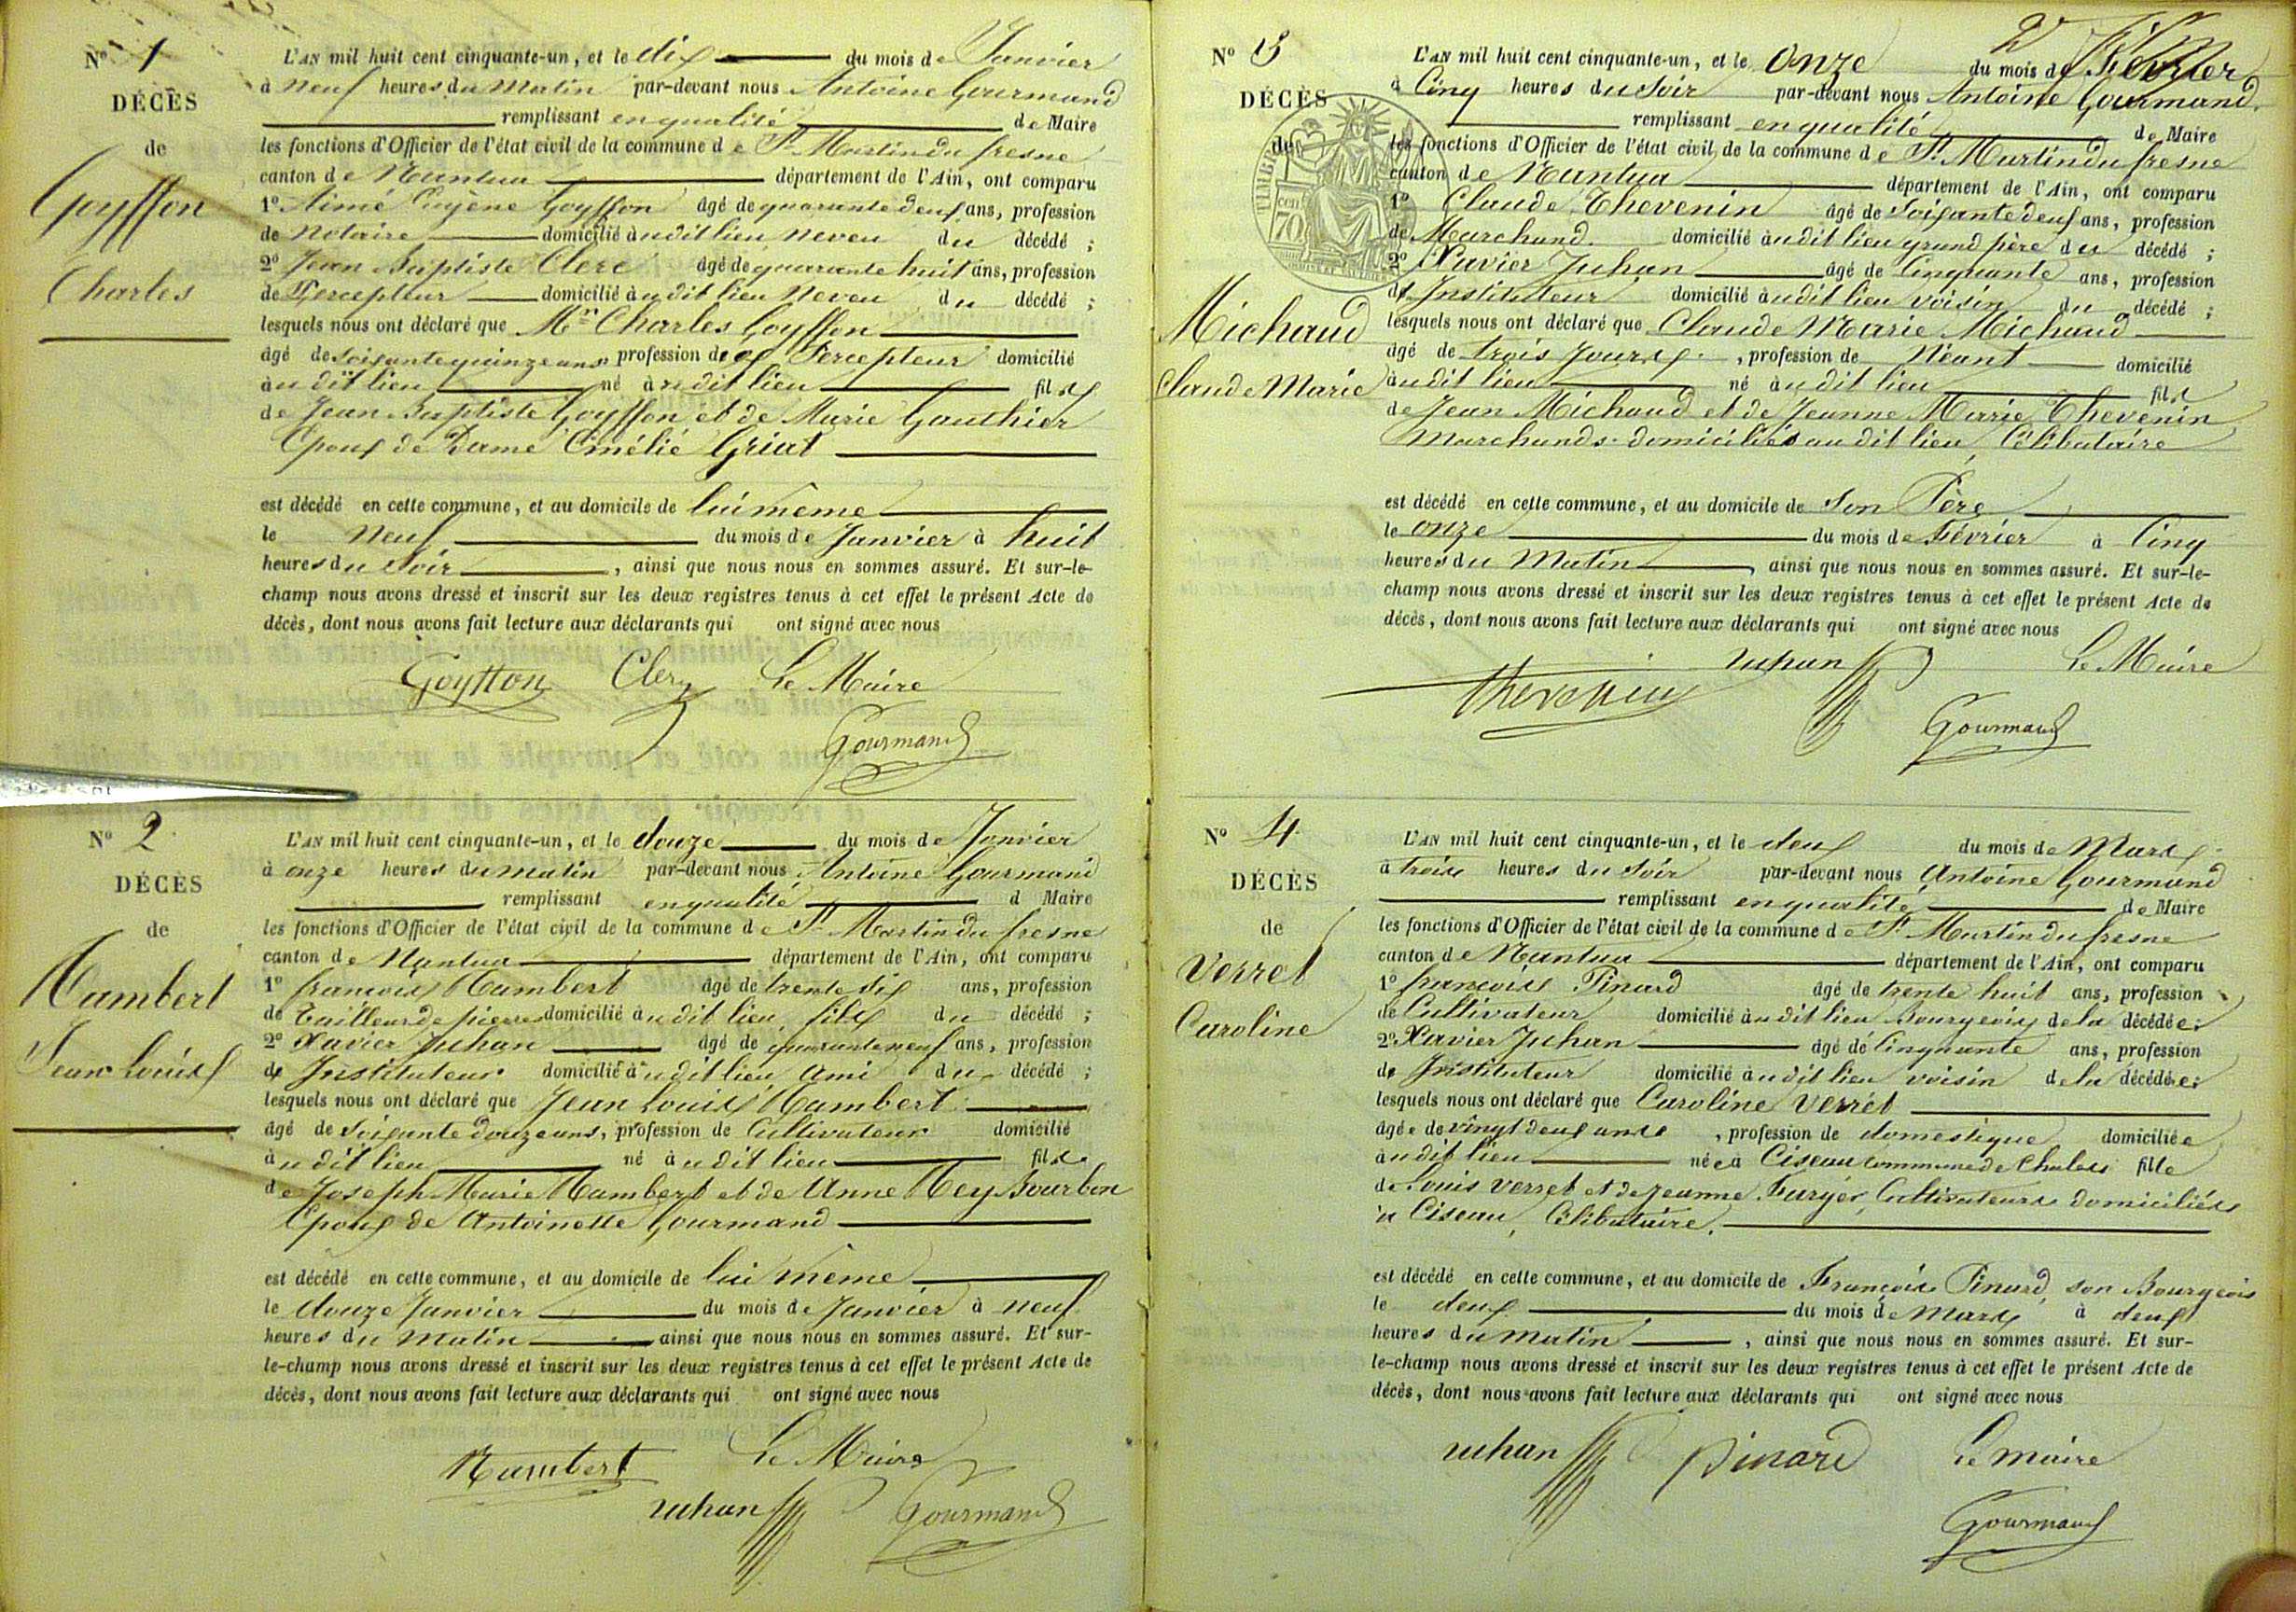 N° 1
DÉCÈS
de
Goyffon
Charles
L'AN mil huit cent cinquante-un, et le dix du mois de Janvier
à neuf heures du Matin par-devant nous Antoine Gourmand
remplissant en qualité de Maire
les fonctions d'Officier de l'état civil de la commune de St Martin du fresne
canton de Nantua département de l'Ain, ont comparu
1° Aimé Eugène Goyffon âgé de quarante deux ans, profession
de Notaire domicilié àudit lieu Neveu du décédé ;
2° Jean Baptiste Clerc âgé de quarante huit ans, profession
de Percepteur domicilié àudit lieu Neveu du décédé ;
lesquels nous ont déclaré que Mr Charles Goyffon
âgé de soixante quinze ans profession de ex Percepteur domicilié
àu dit lieu né àu dit lieu fils
de Jean Baptiste Goyffon et de Marie Gauthier
Epoux de Dame Griat
est décédé en cette commune, et au domicile de lui même
le Neuf du mois de Janvier à huit
heures du Soir, ainsi que nous nous en sommes assuré. Et sur-le-
champ nous avons dressé et inscrit sur les deux registres tenus à cet effet le présent Acte de
décès, dont nous avons fait lecture aux déclarants qui ont signé avec nous
Goyffon Clerc Le Maire
Gourmand
N° 2
DÉCÈS
de
Humbert
Jean Louis
L'AN mil huit cent cinquante-un, et le douze du mois de Janvier
à onze heures du matin par-devant nous Antoine Gourmand
remplissant en qualité d Maire
les fonctions d'Officier de l'état civil de la commune de St Martin du fresne
canton de Nantua département de l'Ain, ont comparu
1° françois Humbert âgé de trente dix ans, profession
de Tailleur de pierres domicilié àu dit lieu, fils du décédé ;
2° Xavier Juhan âgé de quarante neuf ans, profession
de Instituteur domicilié àu dit lieu Ami du décédé ;
lesquels nous ont déclaré que Jean Louis Humbert
âgé de Soixante douze ans, profession de Cultivateur domicilié
àu dit lieu né àu dit lieu fils
de Joseph Marie Humbert et de Anne Rey Bourbon
Epoux de Antoinette Gourmand
est décédé en cette commune, et au domicile de lui même
le douze Janvier du mois de Janvier à neuf
heures du Matin ainsi que nous nous en sommes assuré. Et sur-
le-champ nous avons dressé et inscrit sur les deux registres tenus à cet effet le présent Acte de
décès, dont nous avons fait lecture aux déclarants qui ont signé avec nous
Humbert Le Maire
Juhan Gourmand
N° 3
DÉCÈS
de
Michaud
Claude Marie
L'AN mil huit cent cinquante-un, et le Onze du mois de Février
à Cinq heures du Soir par-devant nous Antoine Gourmand
remplissant en qualité de Maire
les fonctions d'Officier de l'état civil de la commune de St Martin du fresne
canton de Nantua département de l'Ain, ont comparu
1° Claude Thevenin âgé de Soixante deux ans, profession
de Marchand domicilié àudit lieu grand père du décédé ;
2° Xavier Juhan âgé de Cinquante ans, profession
de Instituteur domicilié àudit lieu voisin du décédé ;
lesquels nous ont déclaré que Claude Marie Michaud
âgé de trois jours, profession de Néant domicilié
àu dit lieu né àu dit lieu fils
de Jean Michaud et de Jeanne Marie Thevenin
Marchands domiciliés au dit lieu, Célibataire
est décédé en cette commune, et au domicile de Son Père
le onze du mois de Février à Cinq
heures du Matin, ainsi que nous nous en sommes assuré. Et sur-le-
champ nous avons dressé et inscrit sur les deux registres tenus à cet effet le présent Acte de
décès, dont nous avons fait lecture aux déclarants qui ont signé avec nous
Thevenin Juhan Le Maire
Gourmand
N° 4
DÉCÈS
de
Verret
Caroline
L'AN mil huit cent cinquante-un, et le deux du mois de Mars
à trois heures du Soir par-devant nous Antoine Gourmand
remplissant en qualité de Maire
les fonctions d'Officier de l'état civil de la commune de St Martin du fresne
canton de Nantua département de l'Ain, ont comparu
1° françois Pinard âgé de trente huit ans, profession
de Cultivateur domicilié àu dit lieu Bourgeois de la décédée ;
2° Xavier Juhan âgé de Cinquante ans, profession
de Instituteur domicilié àu dit lieu voisin de la décédée ;
lesquels nous ont déclaré que Caroline Verret
âgée de vingt deux ans, profession de domestique domiciliée
àu dit lieu née à Ciseau commune de fille
de Louis Verret et de Jeanne Cultivateurs domiciliés
à Ciseau, Célibataire.
est décédé en cette commune, et au domicile de François Pinard, son Bourgeois
le deux du mois de Mars à deux
heures du matin, ainsi que nous nous en sommes assuré. Et sur-
le-champ nous avons dressé et inscrit sur les deux registres tenus à cet effet le présent Acte de
décès, dont nous avons fait lecture aux déclarants qui ont signé avec nous
Juhan Pinard Le maire
Gourmand